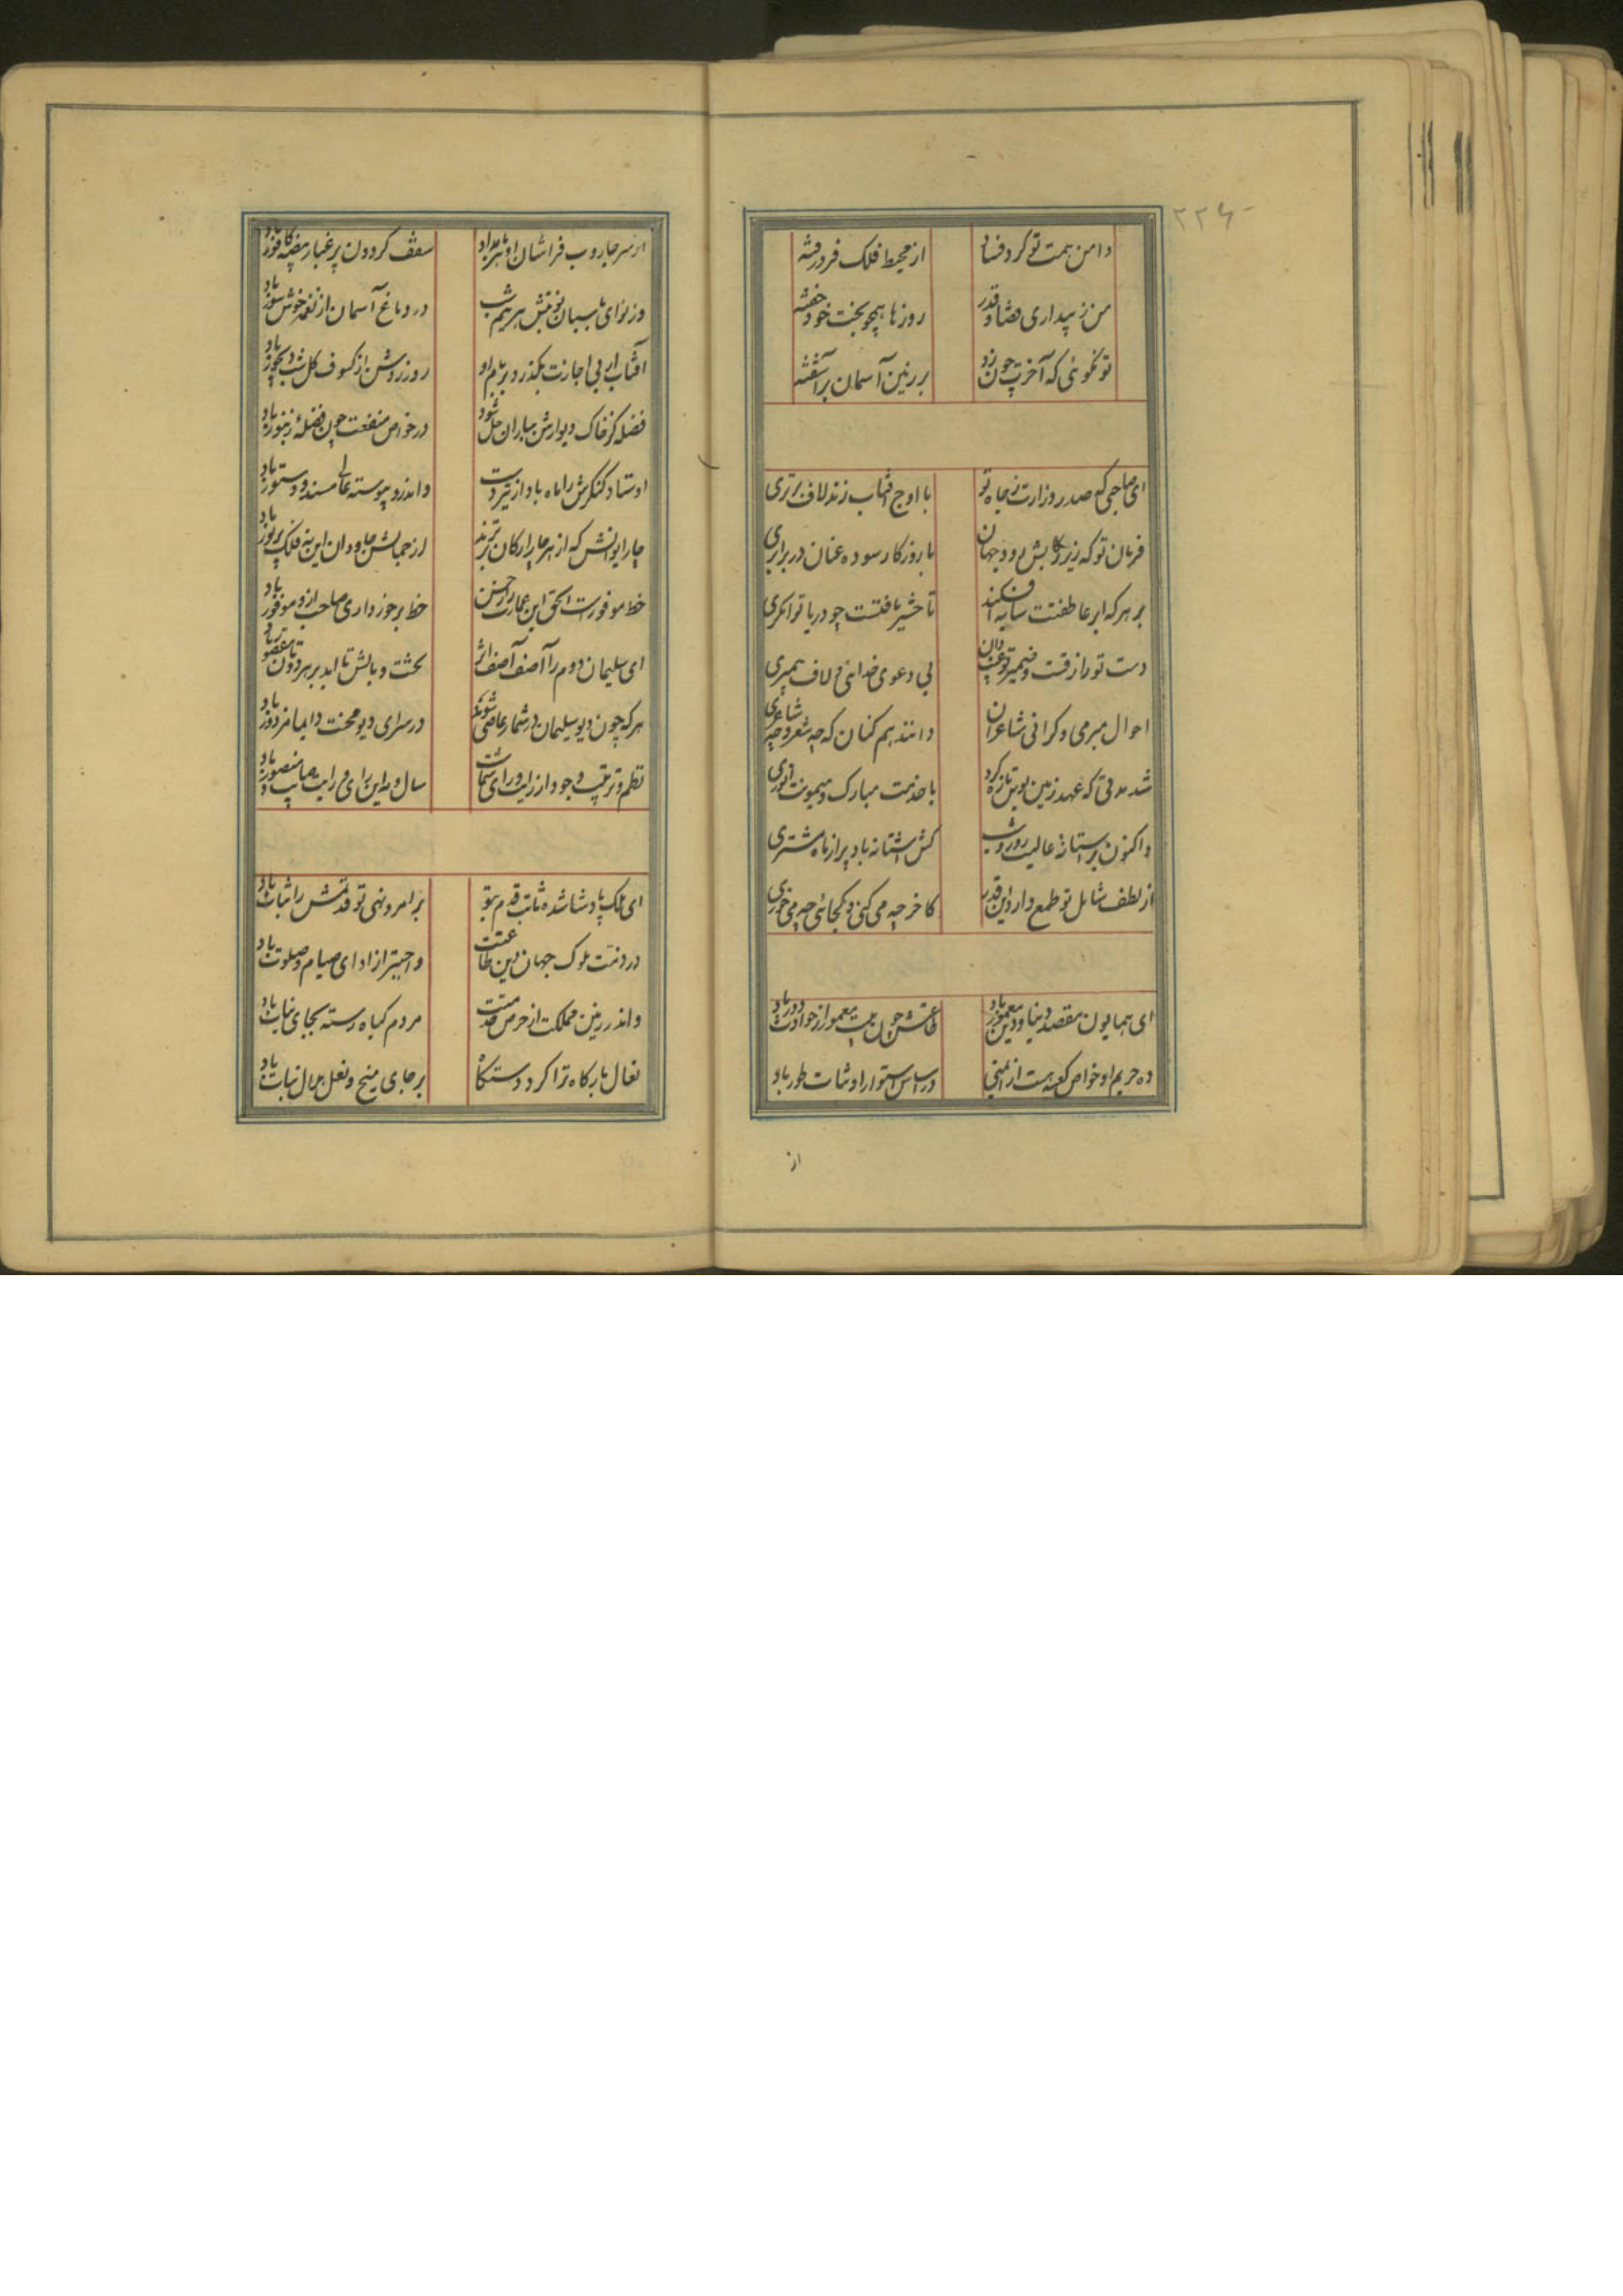 ۲۲۶
دامن همت تو گرد فساد از محیط فلک فرو رفته
من ز بیداری قضا و قدر روزها همچو بخت خود خفته
تو نگوئی که آخرت چون زد بر زمین آسمان برآشفته
ای صاحبی که صدر وزارت ز جاه تو با اوج آفتاب زند لاف برتری
فرمان تو که زیر رکابش رود جهان با روزگار سوده عنان در برابری
بر هر که ابر عاطفتت سایه افکند تا حشر یافتست چو دریا توانگری
دست تو راز قسمت و ضمیر تو غیب دان بی دعوی خدائی و لاف پیمبری
احوال مبرمی و گرانی شاعران دانند هم کنان که چه شعر و چه شاعری
شد مدتی که عهد زمین بوس تازه کرد با خدمت مبارک و میمونت انوری
و اکنون بر آستانه عالیت روز و شب کش آستانه باد پر از ماه و مشتری
از لطف شامل تو طمع دارد این قدر کاخر چه می کنی و کجائی چه می خوری
ای همایون مقصد دنیا و دین معمور باد طاعتش چون بیت معمور از حوادث دور باد
ده حریم او خواص کعبه هست از ایمنی در اساس استوار او ثبات طور باد
از
از سر جاروب فراشان او هر بامداد سقف گردون پر غبار بیضه کافور باد
وز نوای پاسبان نوبتش هر نیم شب در دماغ آسمان از نغمه خوش سور باد
آفتاب ار بی اجازت بگذرد بر بام او روز روشن از کسوف کل شب دیجور باد
فضله کز خاک دیوارش بباران حل شود در خواص منفعت چون فضله زنبور باد
اوستاد کنگرش را ماه باد از تیر دست واندرو پیوسته عالی مسند و دستور باد
چار ایوانش که از هر چار ارکان برترند از جمالش جاودان این نه فلک پر نور باد
حظ موفورست الحق این عمارت را ز حسن حظ برخورداری صاحب ازو موفور باد
ای سلیمان دوم را آصف آصف اثر تخت و بالش تا ابد بر هر دوتان مقصور باد
هر که چون دیو سلیمان در شما عاصی شوند در سرای دیو محنت دایما مزدور باد
نظم و ترتیب وجود از رایت و رای شماست سال و مه این رای و رایت صایب و منصور باد
ای ملک پادشا شده ثابت قدم بتو بر امر و نهی تو قدمش را ثبات باد
در ذمت ملوک جهان دین طاعتت واجبتر از ادای صیام و صلوت باد
واندر زمین مملکت از حرص خدمتت مردم گیاه رسته بجای نبات باد
نعال بارگاه ترا گرد دستگاه بر جای میخ و نعل هلال نبات باد